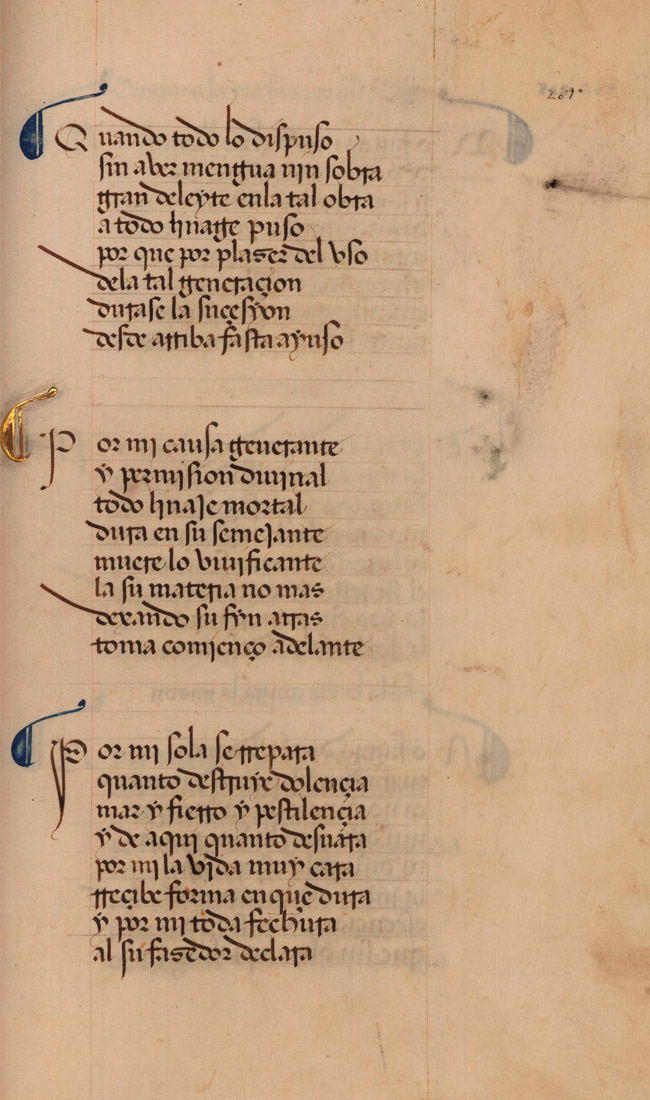 267
Quando todo lo dispuso
sin aber mengua nin sobra
gran deleyte enla tal obra
a todo linage puso
por que por plaser del vso
dela tal generaçion
durase la suçesyon
desde arriba fasta ayuso
Por mi causa generante
y permision diuinal
todo linaje mortal
dura en su semejante
muere lo viuificante
la su materia no mas
dexando su fyn atras
toma comienço adelante
Por mi sola se rrepara
quanto destruye dolençia
mar y fierro y pestilençia
y de aqui quanto desuara
por mi la vida muy cara
rreçibe forma en que dura
y por mi toda fechura
al su fasedor declara